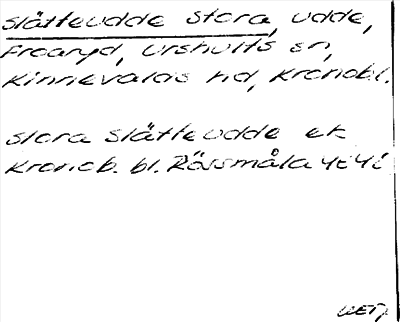 Slätteudde stora, udde,
Froaryd, Urshults sn,
Kinnevalds hd, Kronob.l.
stora Slätteudde ek
Kronob. bl. Rössmåla